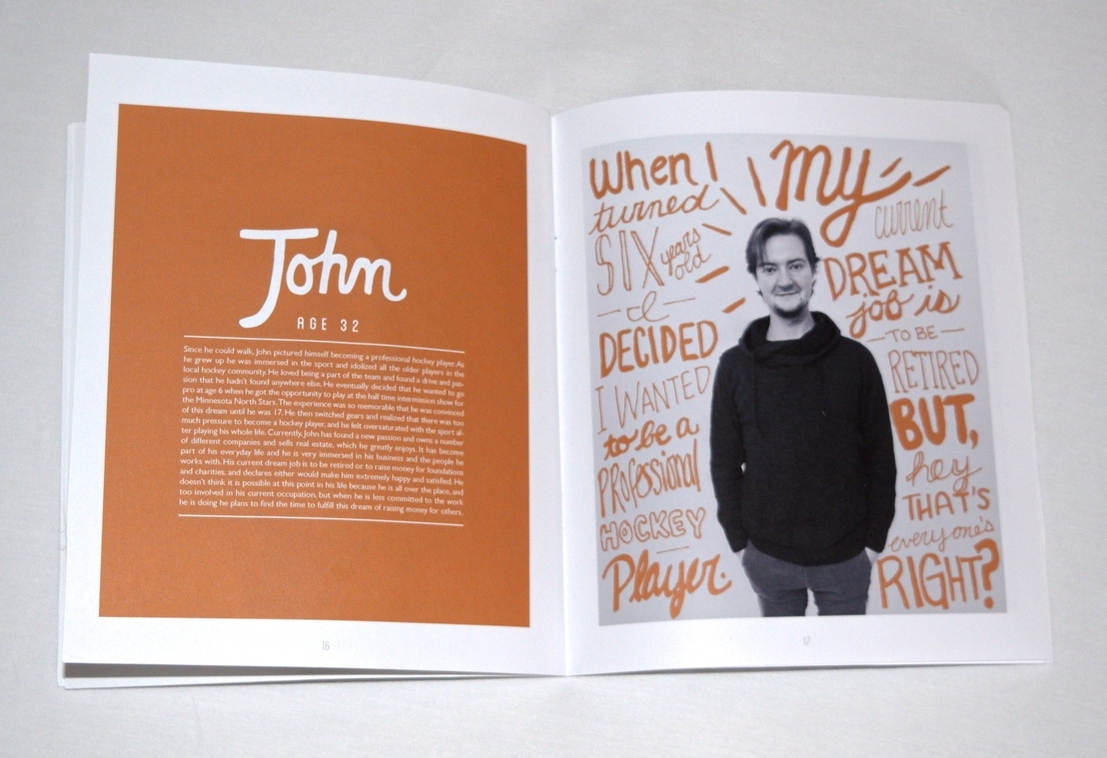 John
AGE 32
Since he could walk, John pictured himself becoming a professional hockey player. As
he grew up he was immersed in the sport and idolized all the older players in the
local hockey community. He loved being a part of the team and found a drive and pas-
sion that he hadn't found anywhere else. He eventually decided that he wanted to go
pro at age 6 when he got the opportunity to play at the half time intermission show for
the Minnesota North Stars. The experience was so memorable that he was convinced
of this dream until he was 17. He then switched gears and realized that there was too
much pressure to become a hockey player, and he felt oversaturated with the sport af-
ter playing his whole life. Currently, John has found a new passion and owns a number
of different companies and sells real estate, which he greatly enjoys. It has become
part of his everyday life and he is very immersed in his business and the people he
works with. His current dream job is to be retired or to raise money for foundations
and charities, and declares either would make him extremely happy and satisfied. He
doesn't think it is possible at this point in his life because he is all over the place, and
too involved in his current occupation, but when he is less committed to the work
he is doing he plans to find the time to fulfill this dream of raising money for others.
16
When I
turned
SIX years
old
I
DECIDED
I WANTED
to be a
PROFESSIONAL
HOCKEY
Player.
My
current
DREAM
job is
TO BE
RETIRED
BUT,
hey
THAT'S
everyone's
RIGHT?
17